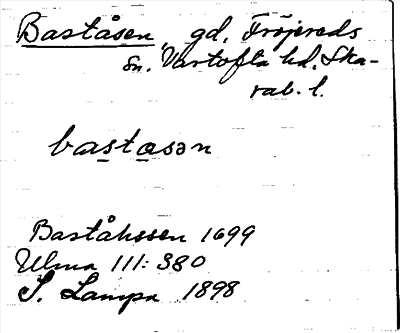 Baståsen, gd, Fröjereds
sn. Vartofta hd, Ska-
rab. l.
bastasən
Baståhssen 1699
Ulma 111:380
S. Lampa 1898